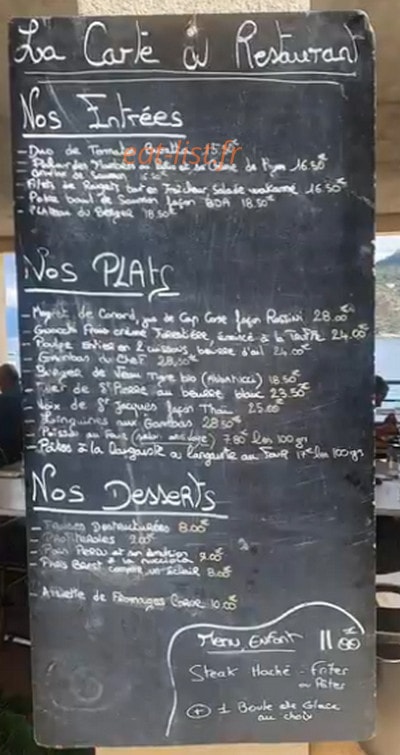 La Carte du Restaurant
Nos Entrées
eat-list.fr
- Duo de Tomates Burratta 15.50€
de Pym 16.50€
de Saumon
- Filets de Rougets Salade wakamé 16.50€
- Poke bowl de Saumon façon BDA 18.50€
- Plateau du Berger 18.50€
Nos PLATS
- Magret de Canard, jus de Cap Corse façon Rossini 28.00€
- Gnocchi Frais crème Forestière, émincé à la Truffe 24.00€
- Poulpe Entier en 2 cuissons, beurre d'ail 24.00€
- Gambas du Chef 28,50€
- Burger de Veau Tigre bio 18.50€
- Filet de St Pierre au beurre blanc 23.50€
- Noix de St Jacques façon Thaï 25.00€
- Linguines aux Gambas 28.50€
- Poisson au Four (selon arrivage) 7.80€ les 100 grs
- Pâtes à la Langouste ou langouste au Four 17€ les 100 grs
Nos Desserts
- Fraises Destructurées 8.00€
- Profiteroles 9.00€
- Pain Perdu et son 9.00€
à la nucciola
- Paris Brest comme un éclair 8.00€
- Assiette de Fromages Corse 10.00€
Menu Enfant 11€00
Steak Haché - Frites
ou Pâtes
+ 1 Boule de Glace
au choix